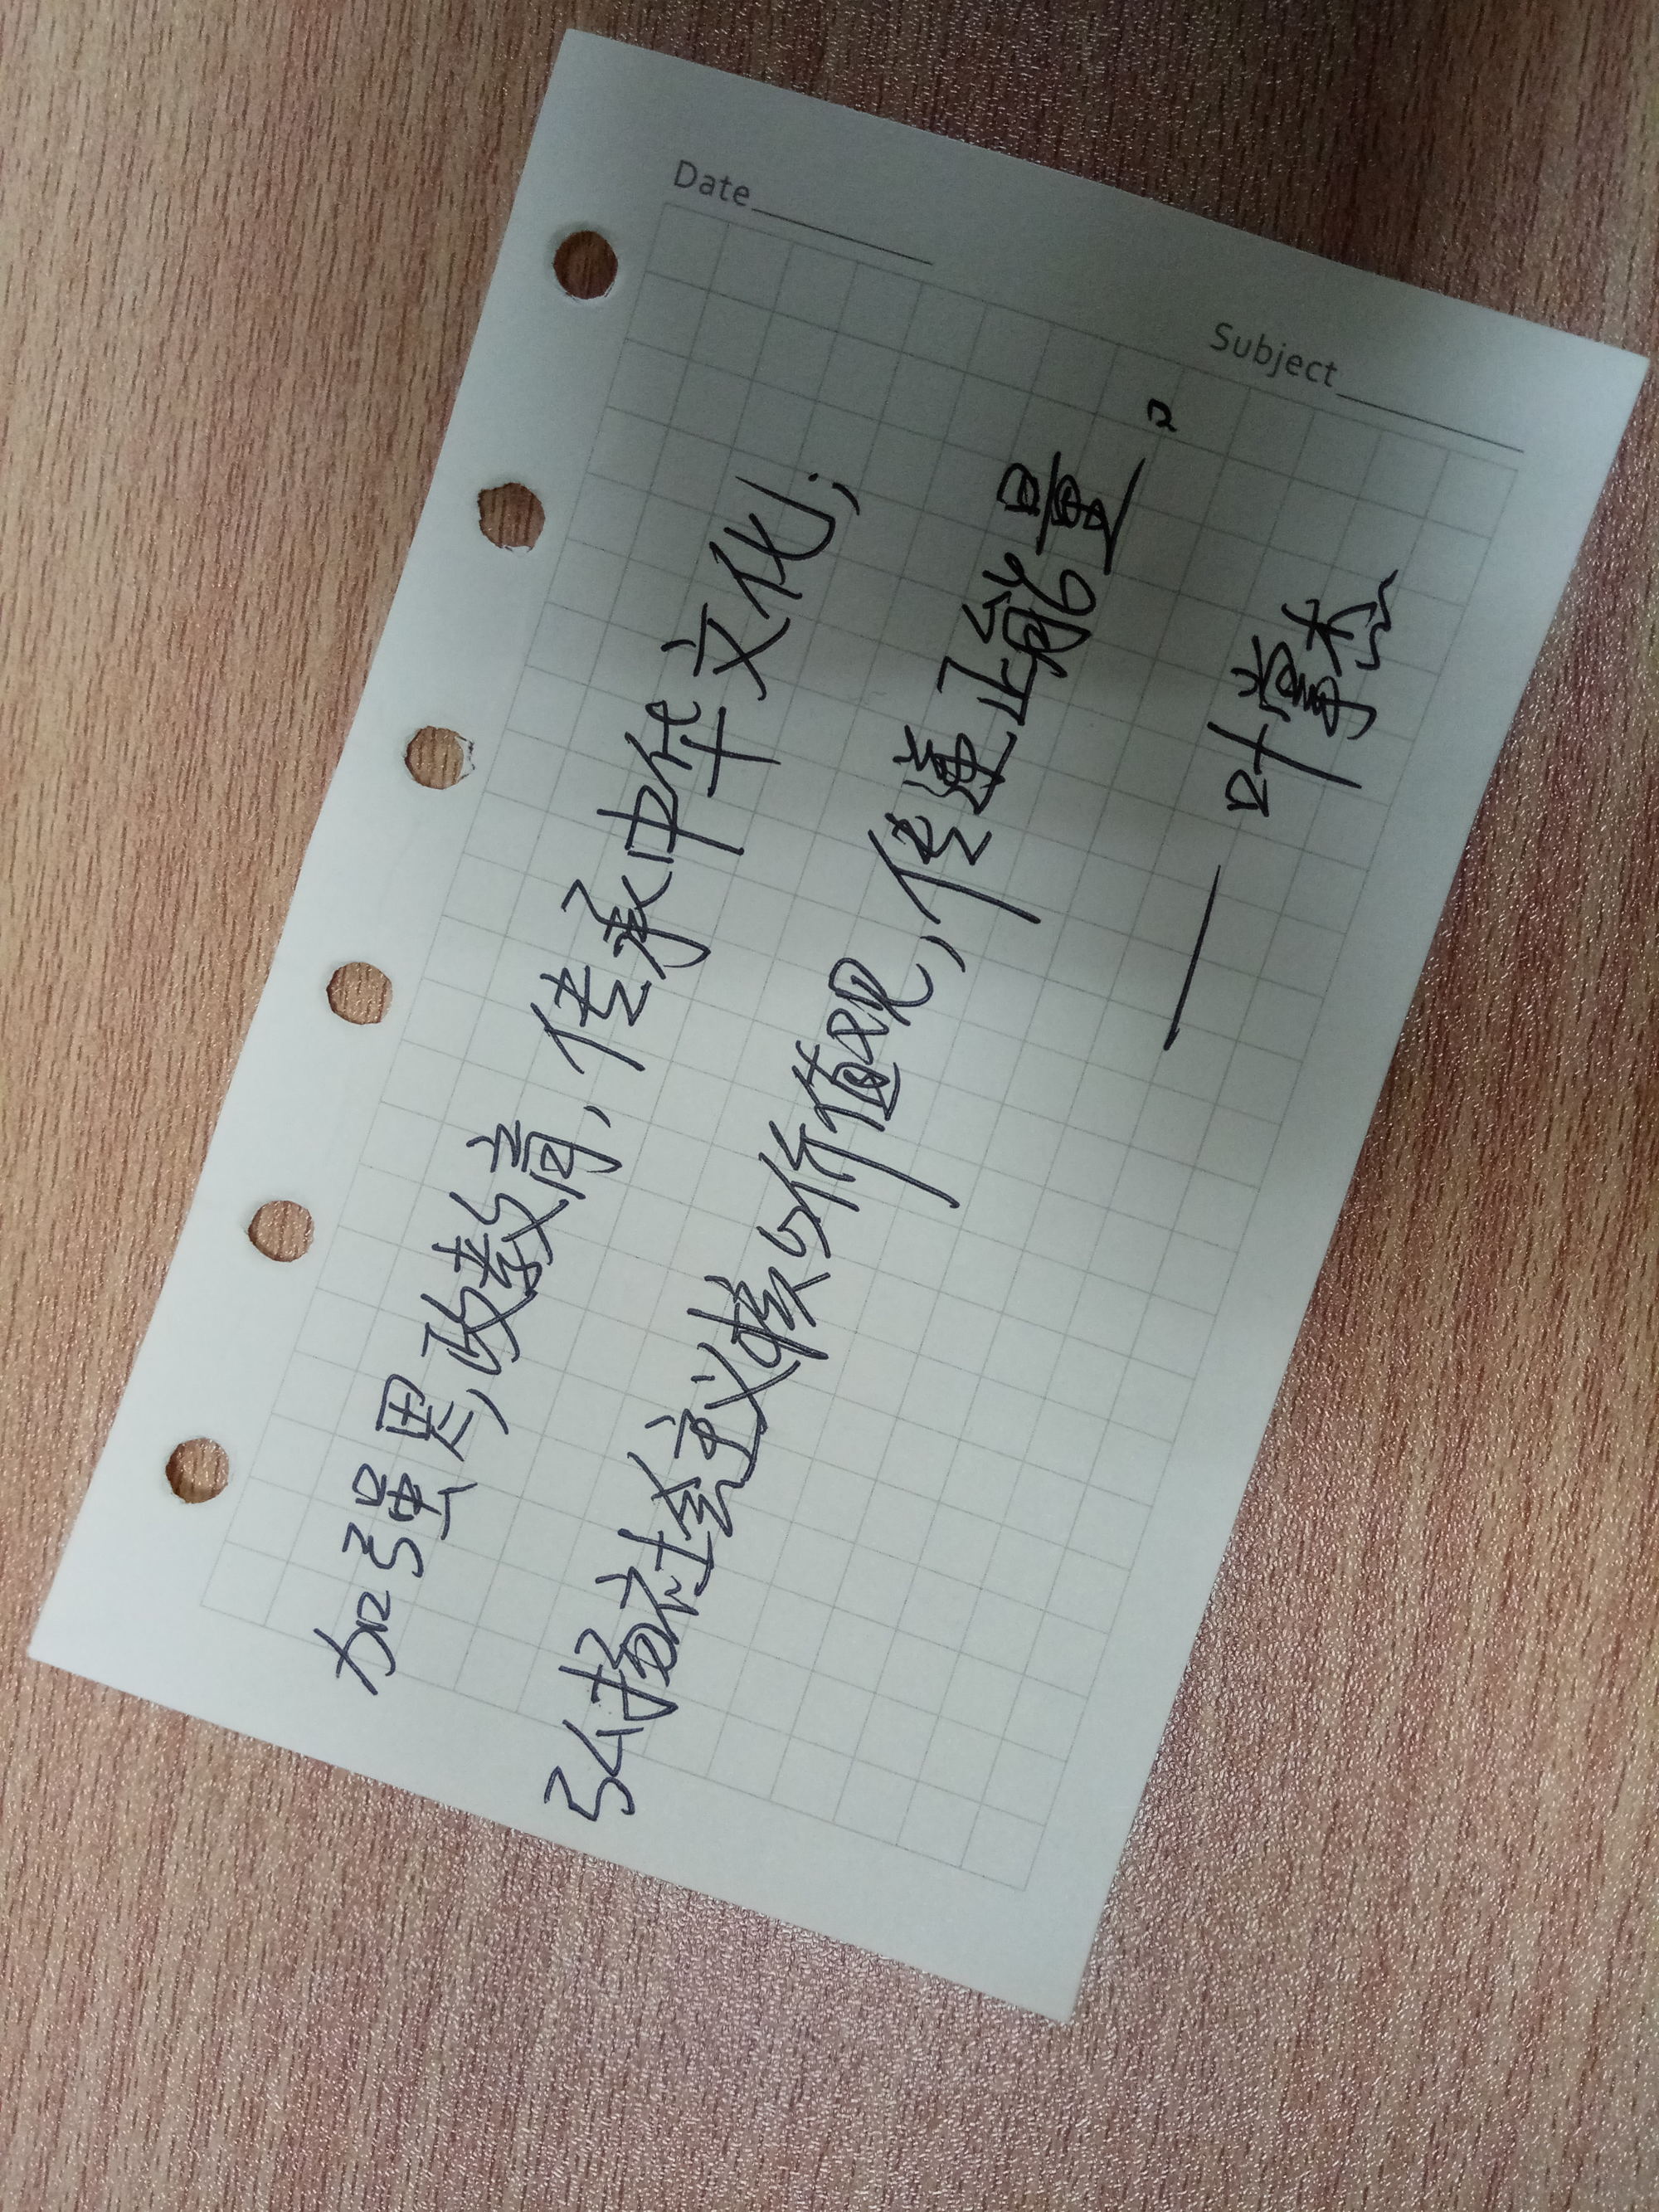 Date
Subject
加强思政教育,传承中华文化;
弘扬社会主义核心价值观,传递正能量。
——叶掌杰